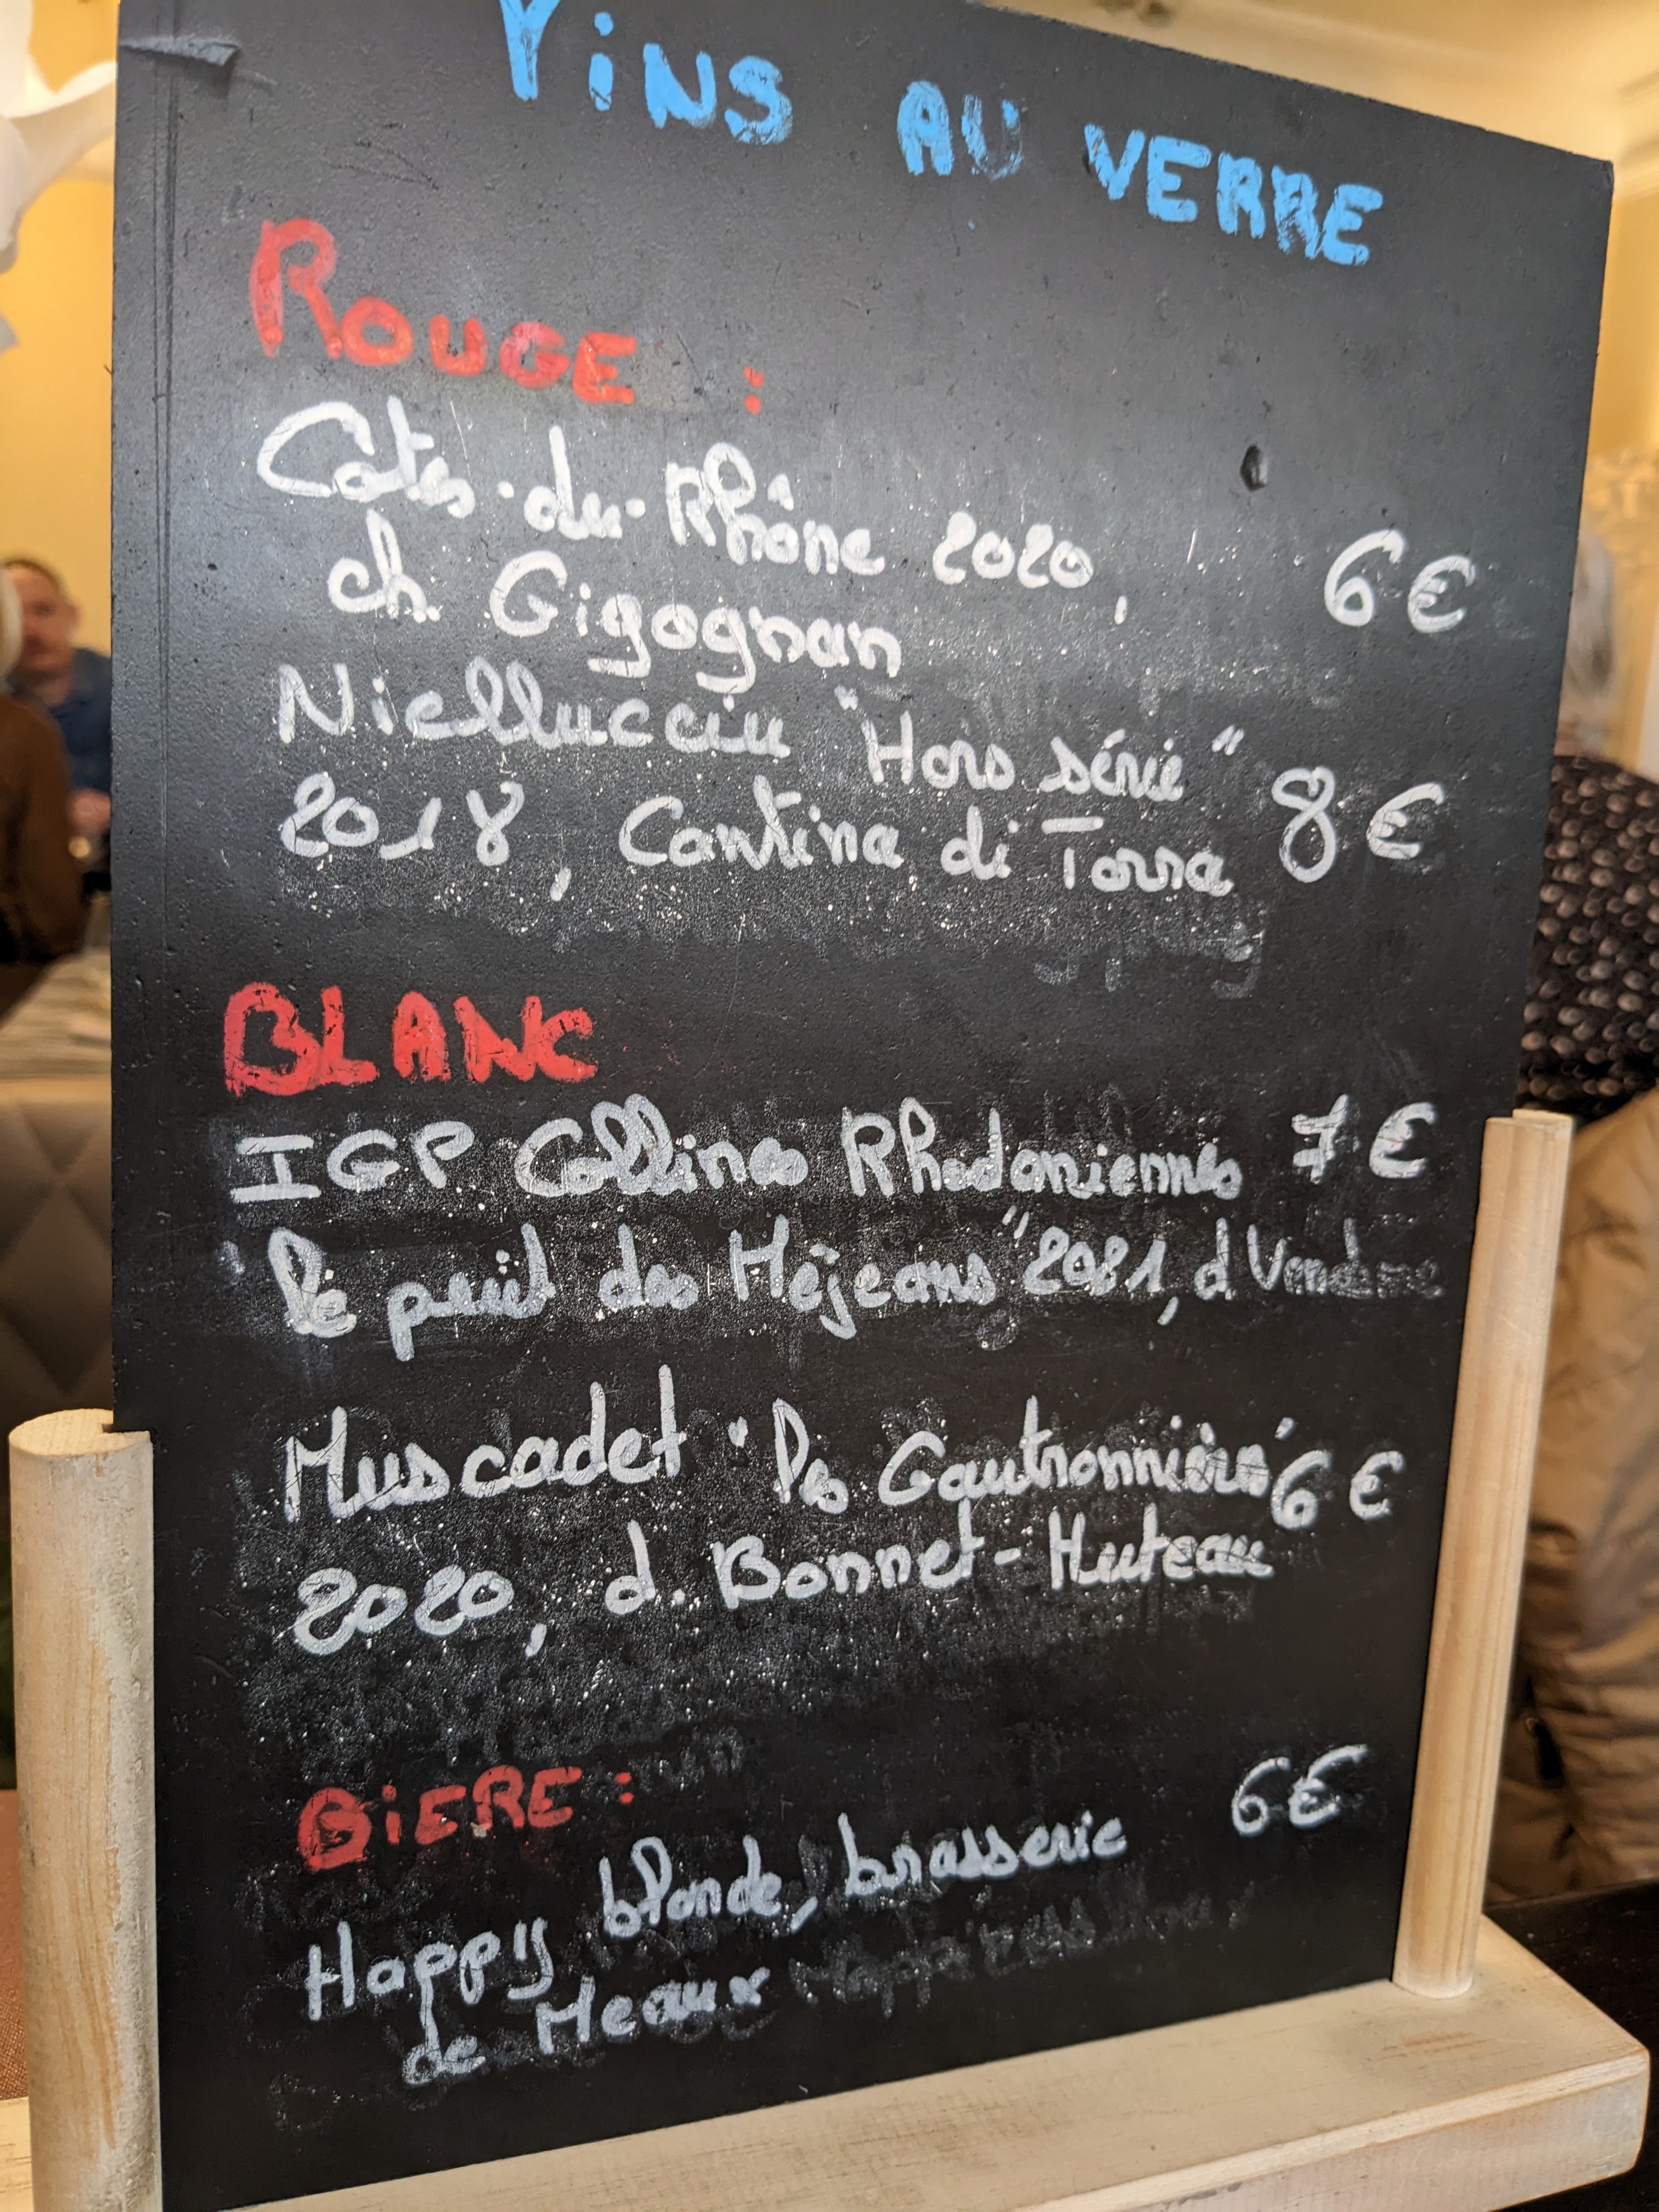 VINS AU VERRE
ROUGE :
Cotes-du-Rhône 2020,
6€
ch. Gigognan
Niellucciu "Hors série"
2018, Cantina di Torra
8€
BLANC
IGP Collines Rhodaniennes 7€
"le petit des Méjeans" 2021, d Vendome
Muscadet "les Gautronnières" 6€
2020, d. Bonnet-Huteau
BIERE :
6€
Happy blonde, brasserie
de Meaux